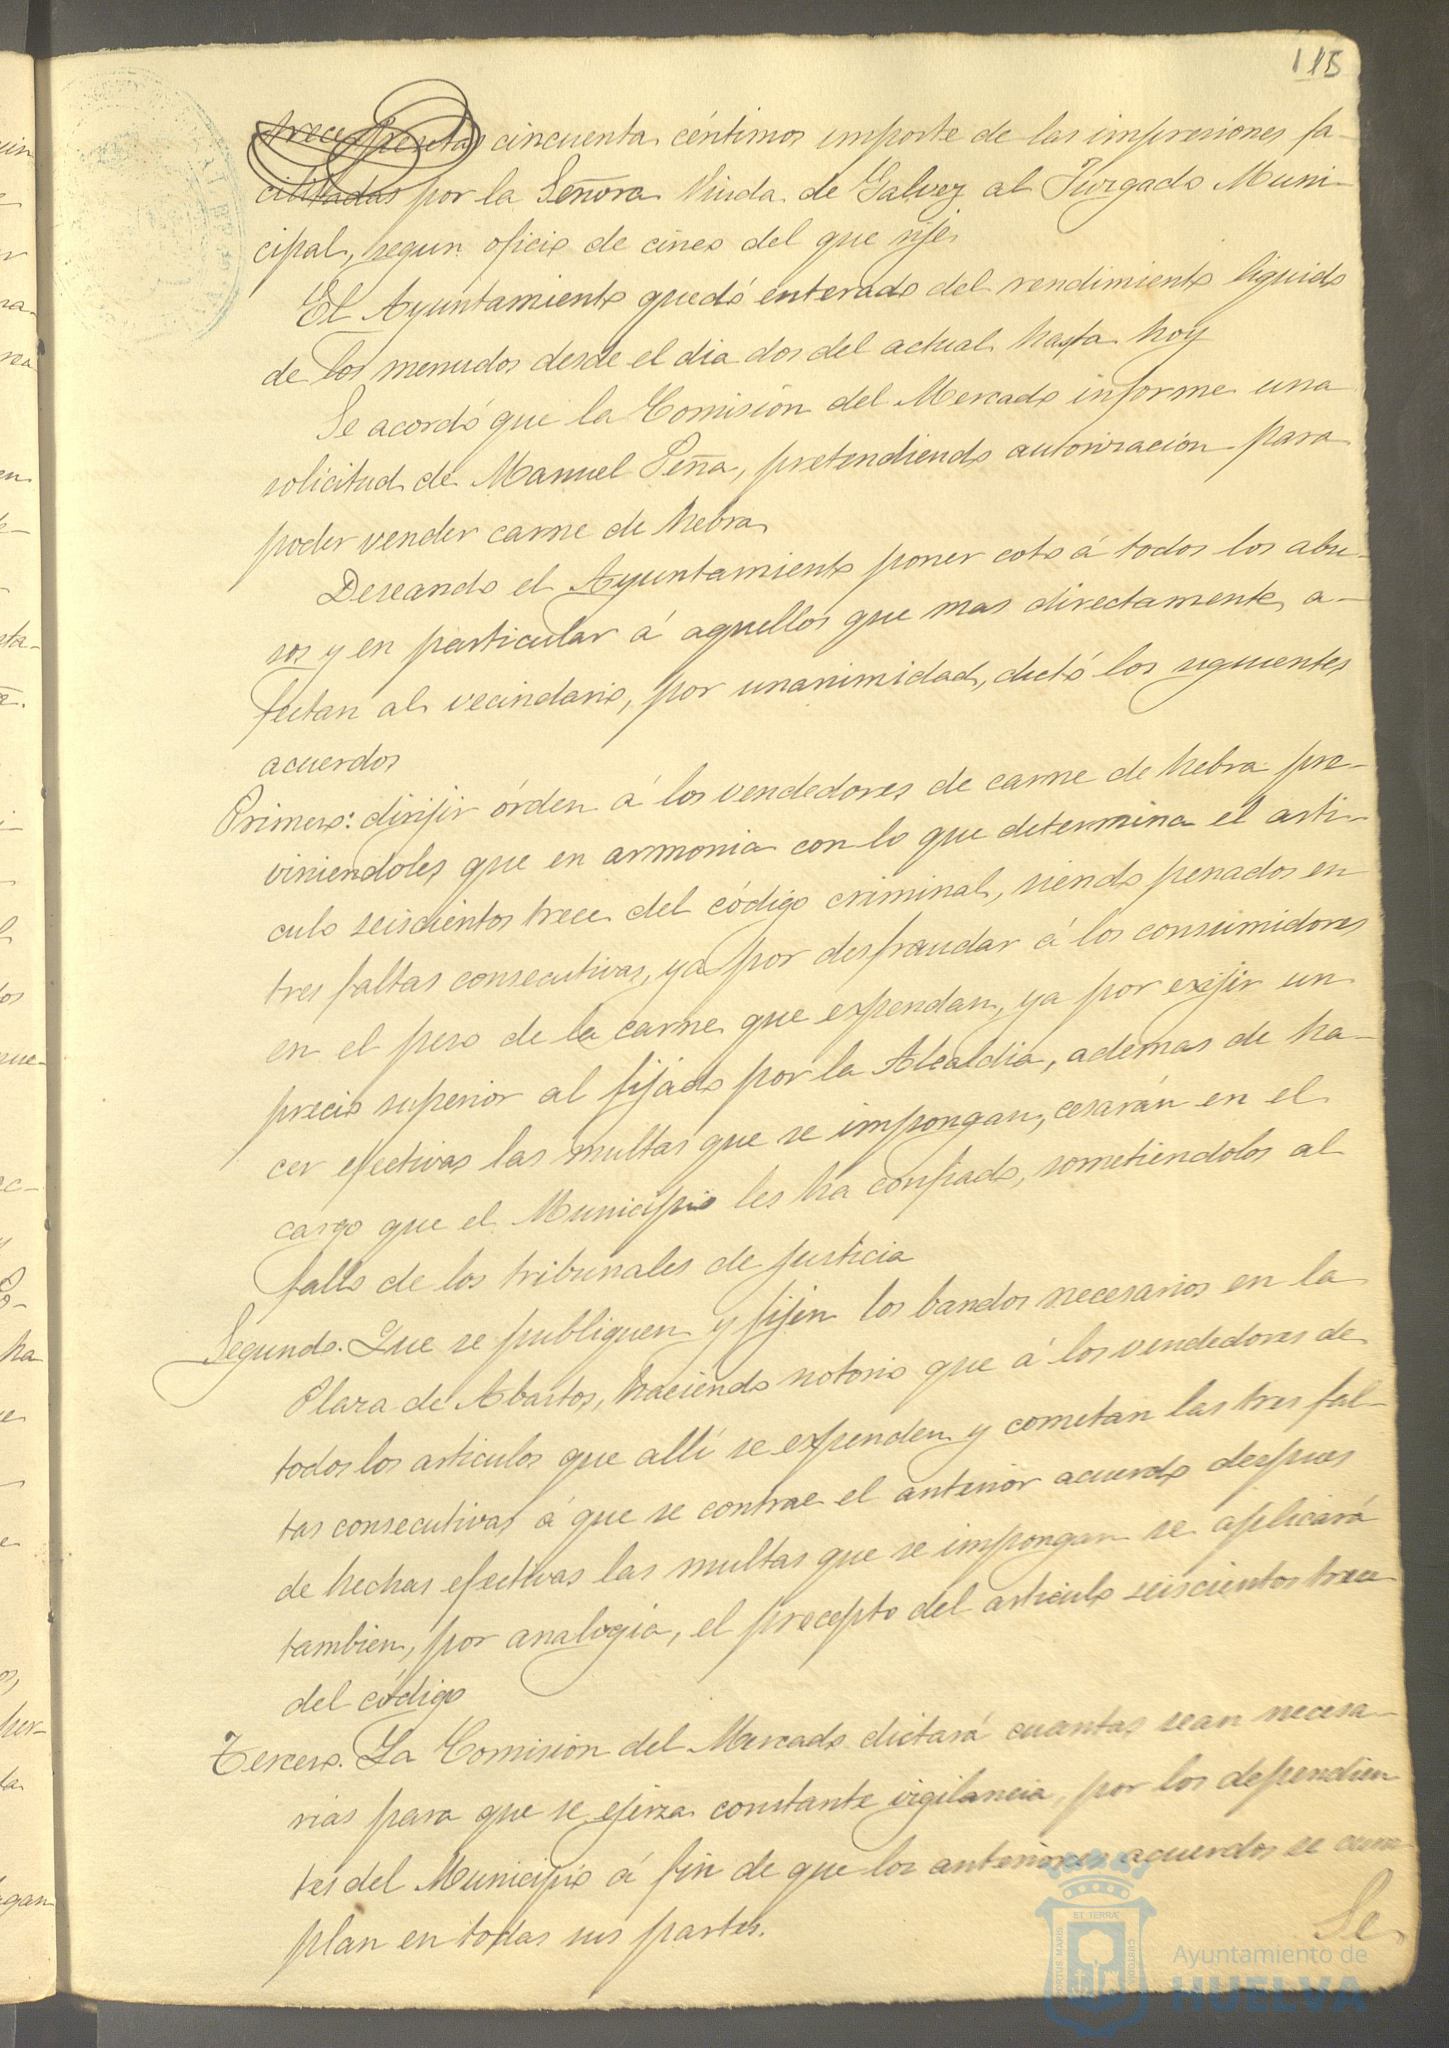 115
trece pesetas cincuenta céntimos importe de las impresiones fa-
cilitadas por la Señora Viuda de Galvez al Juzgado Muni-
cipal, segun oficio de cinco del que rije.
El Ayuntamiento quedó enterado del rendimiento liquido
de los menudos desde el dia dos del actual hasta hoy
Se acordó que la Comisión del Mercado informe una
solicitud de Manuel Peña, pretendiendo autorización para
poder vender carne de hebra
Deseando el Ayuntamiento poner coto á todos los abu-
sos y en particular á aquellos que mas directamente a-
fectan al vecindario, por unanimidad, dictó los siguientes
acuerdos
Primero: dirijir órden á los vendedores de carne de hebra pre-
viniendoles que en armonia con lo que determina el arti-
culo seiscientos trece del código criminal, siendo penados en
tres faltas consecutivas, ya por desfraudar á los consumidores
en el peso de la carne que expendan, ya por exijir un
precio superior al fijado por la Alcaldia, ademas de ha-
cer efectivas las multas que se impongan, cesarán en el
cargo que el Municipio les ha confiado, sometiéndolos al
fallo de los tribunales de justicia
Segundo. Que se publiquen y fijen los bandos necesarios en la
Plaza de Abastos, haciendo notorio que á los vendedores de
todos los articulos que allí se expenden y cometan las tres fal-
tas consecutivas á que se contrae el anterior acuerdo despues
de hechas efectivas las multas que se impongan se aplicará
tambien, por analogia, el precepto del articulo seiscientos trece
del código
Tercero. La Comisión del Mercado dictará cuantas sean necesa-
rias para que se ejerza constante vigilancia, por los dependien
tes del Municipio á fin de que los anteriores acuerdos se cum-
plan en todas sus partes.
Se
ET TERRÆ
PORTUS MARIS
CUSTODIA
Ayuntamiento de
HUELVA